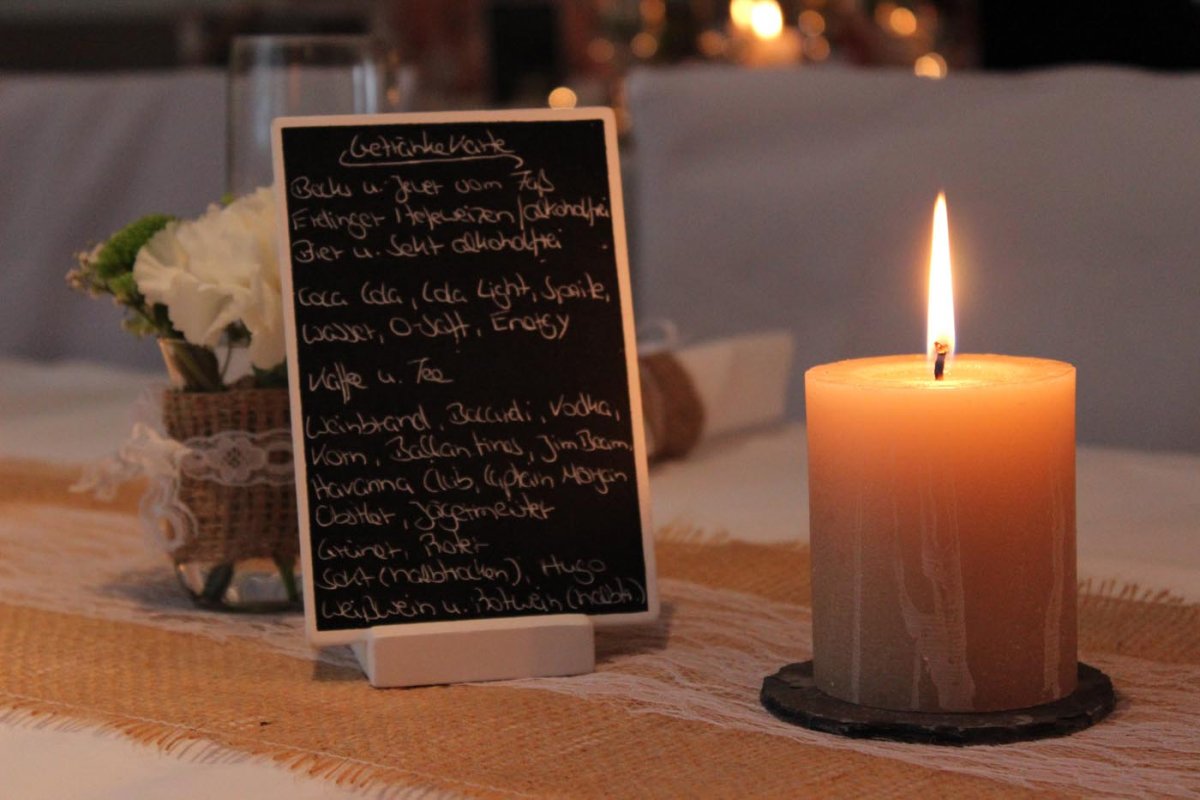 Getränkekarte
Becks u. Jever vom Faß
Erdinger Hefeweizen/alkoholfrei
Bier u. Sekt alkoholfrei
Coca Cola, Cola Light, Sprite,
Wasser, O-Saft, Energy
Kaffe u. Tee
Weinbrand, Baccardi, Vodka,
Korn, Ballantines, Jim Beam,
Havanna Club, Captain Morgan
Obstler, Jägermeister
Grüner, Roter
Sekt (halbtrocken), Hugo
Weißwein u. Rotwein (halbtr.)